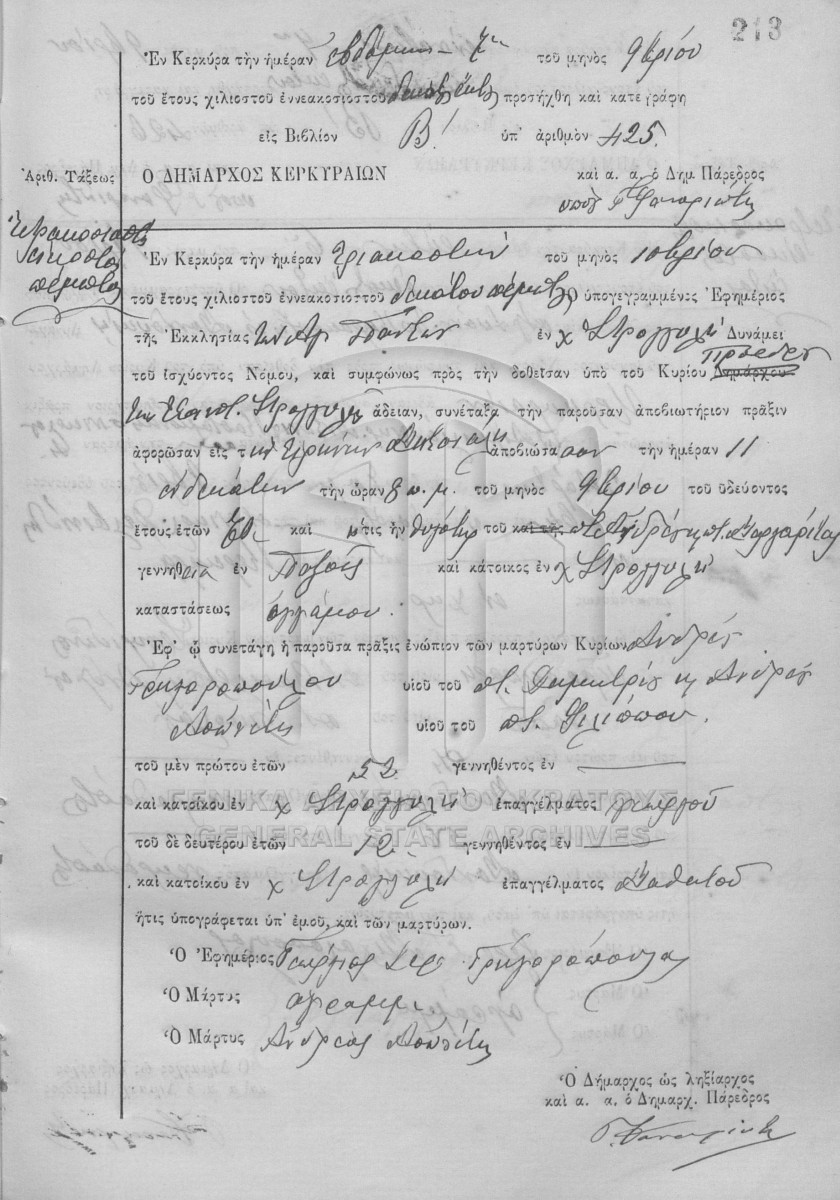 213
Ἐν Κερκύρα τὴν ἡμέραν ἑβδόμην 7ην τοῦ μηνὸς 9βρίου
τοῦ ἔτους χιλιοστοῦ ἐννεακοσιοστοῦ δεκάτου ἕκτου προσήχθη καὶ κατεγράφη
εἰς Βιβλίον Β! ὑπ' ἀριθμὸν 425.
Ἀριθ. Τάξεως Ο ΔΗΜΑΡΧΟΣ ΚΕΡΚΥΡΑΙΩΝ καὶ α. α. ὁ Δημ Πάρεδρος
Τετρακοσιοστὸς
εἰκοστὸς
πέμπτος
Ἐν Κερκύρα τὴν ἡμέραν τριακοστὴν τοῦ μηνὸς 10βρίου
τοῦ ἔτους χιλιοστοῦ ἐννεακοσιοστοῦ δεκάτου πέμπτου Ὁ ὑπογεγραμμένος Ἐφημέριος
τῆς Ἐκκλησίας τῶν Ἁγ Πάντων ἐν χ Στρογγυλῇ Δυνάμει
τοῦ ἰσχύοντος Νόμου, καὶ συμφώνως πρὸς τὴν δοθεῖσαν ὑπὸ τοῦ Κυρίου Δημάρχου Προέδρου
Στρογγυλῆς ἄδειαν, συνέταξα τὴν παροῦσαν ἀποβιωτήριον πρᾶξιν
ἀφορῶσαν εἰς τὴν Εἰρήνην ἀποβιώσασαν τὴν ἡμέραν 11
ἑνδεκάτην τὴν ὥραν 8 π.μ. τοῦ μηνὸς 9βρίου τοῦ ὁδεύοντος
ἔτους ἐτῶν καὶ ἥτις ἦν θυγάτηρ τοῦ καὶ τῆς ποτὲ Ἀνδρέου κ ποτ. Μαργαρίτας
γεννηθεῖσα ἐν Παξοῖς καὶ κάτοικος ἐν χ Στρογγυλῇ
καταστάσεως ἀγάμου.
Ἐφ' ᾧ συνετάγη ἡ παροῦσα πρᾶξις ἐνώπιον τῶν μαρτύρων Κυρίων Ἀνδρέα
Γρηγοροπούλου υἱοῦ τοῦ ποτ. Δημητρίου κ Ἀνδρέα
υἱοῦ τοῦ ποτ. Φιλίππου.
τοῦ μὲν πρώτου ἐτῶν 52 γεννηθέντος ἐν
καὶ κατοίκου ἐν χ Στρογγυλῇ ἐπαγγέλματος γεωργοῦ
ΓΕΝΙΚΑ ΑΡΧΕΙΑ ΤΟΥ ΚΡΑΤΟΥΣ
GENERAL STATE ARCHIVES
τοῦ δὲ δευτέρου ἐτῶν 12 γεννηθέντος ἐν
καὶ κατοίκου ἐν χ Στρογγυλῇ ἐπαγγέλματος μαθητοῦ
ἥτις ὑπογράφεται ὑπ' ἐμοῦ, καὶ τῶν μαρτύρων.
Ὁ Ἐφημέριος Γεώργιος Ἱερ. Γρηγορόπουλος
Ὁ Μάρτυς ἀγράμμ.
Ὁ Μάρτυς Ἀνδρέας
Ὁ Δήμαρχος ὡς ληξίαρχος
καὶ α. α. ὁ Δημαρχ. Πάρεδρος